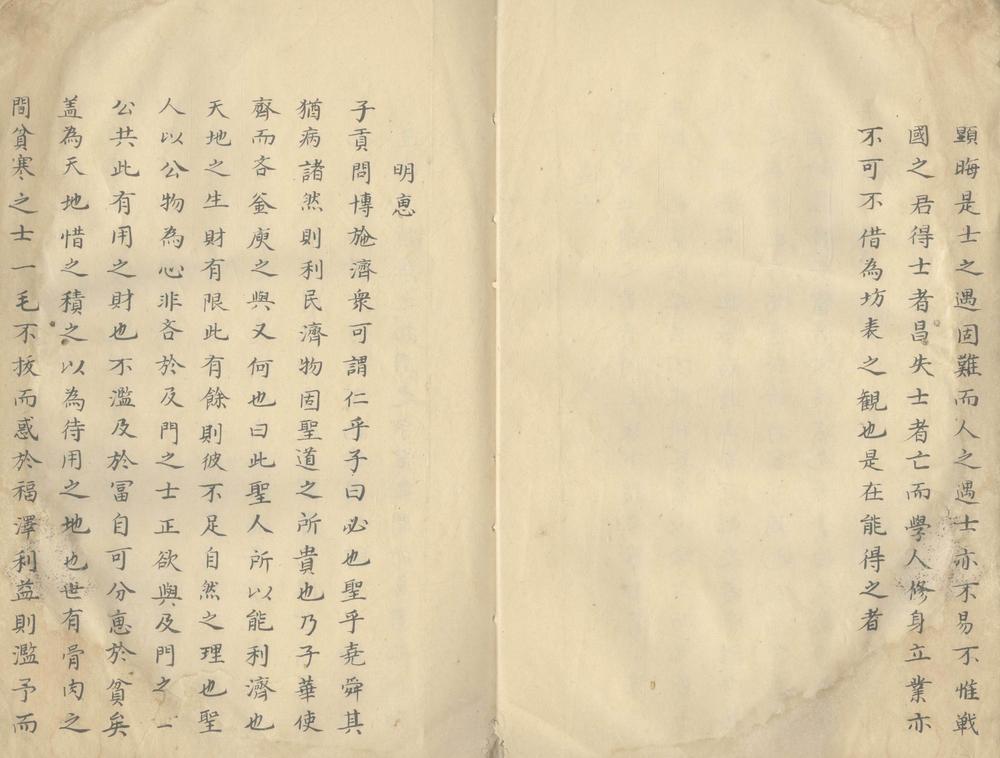 顕晦是士之遇固難而人之遇士亦不易不惟戦
國之君得士者昌失士者亡而學人修身立業亦
不可不借為坊表之観也是在能得之者
明恵
子貢問博施濟衆可謂仁乎子曰必也聖乎堯舜其
猶病諸然則利民濟物固聖道之所貴也乃子華使
齊而吝釜庾之與又何也曰此聖人所以能利濟也
天地之生財有限此有餘則彼不足自然之理也聖
人以公物為心非吝於及門之士正欲與及門之士
公共此有用之財也不濫及於冨自可分恵於貧矣
盖為天地惜之積之以為待用之地也世有骨肉之
間貧寒之士一毛不抜而惑於福澤利益則濫予而